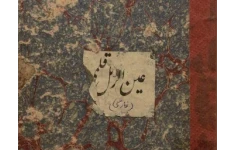 عین الرمل قلمی
(فارسی)